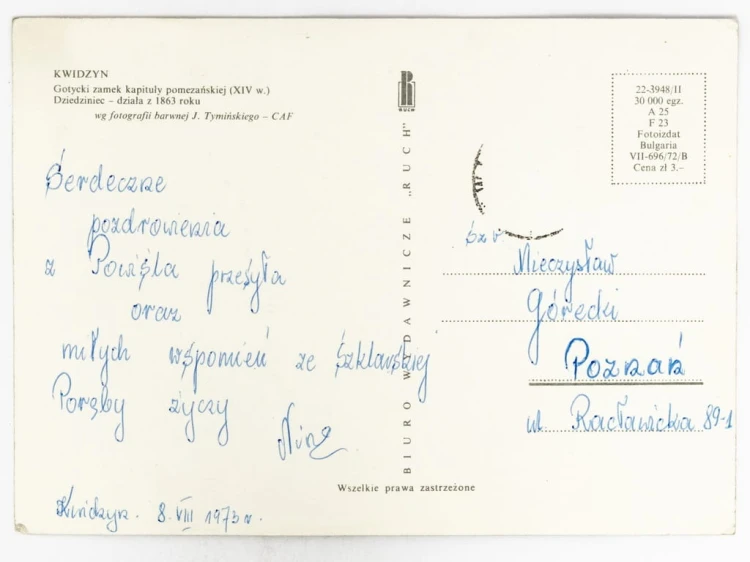 KWIDZYN
Gotycki zamek kapituły pomezańskiej (XIV w.)
Dziedziniec – działa z 1863 roku
wg fotografii barwnej J. Tymińskiego – CAF
Serdeczne
pozdrowienia
z Powiśla przesyła
oraz
miłych wspomień ze Szklarskiej
Poręby życzy
Nina
Kwidzyn. 8.VIII 1973 r.
BIURO WYDAWNICZE „RUCH"
RUCH
22-3948/II
30 000 egz.
A 25
F 23
Fotoizdat
Bulgaria
VII-696/72/B
Cena zł 3.–
Sz. P.
Mieczysław
Górecki
Poznań
ul. Racławicka 89-1
Wszelkie prawa zastrzeżone